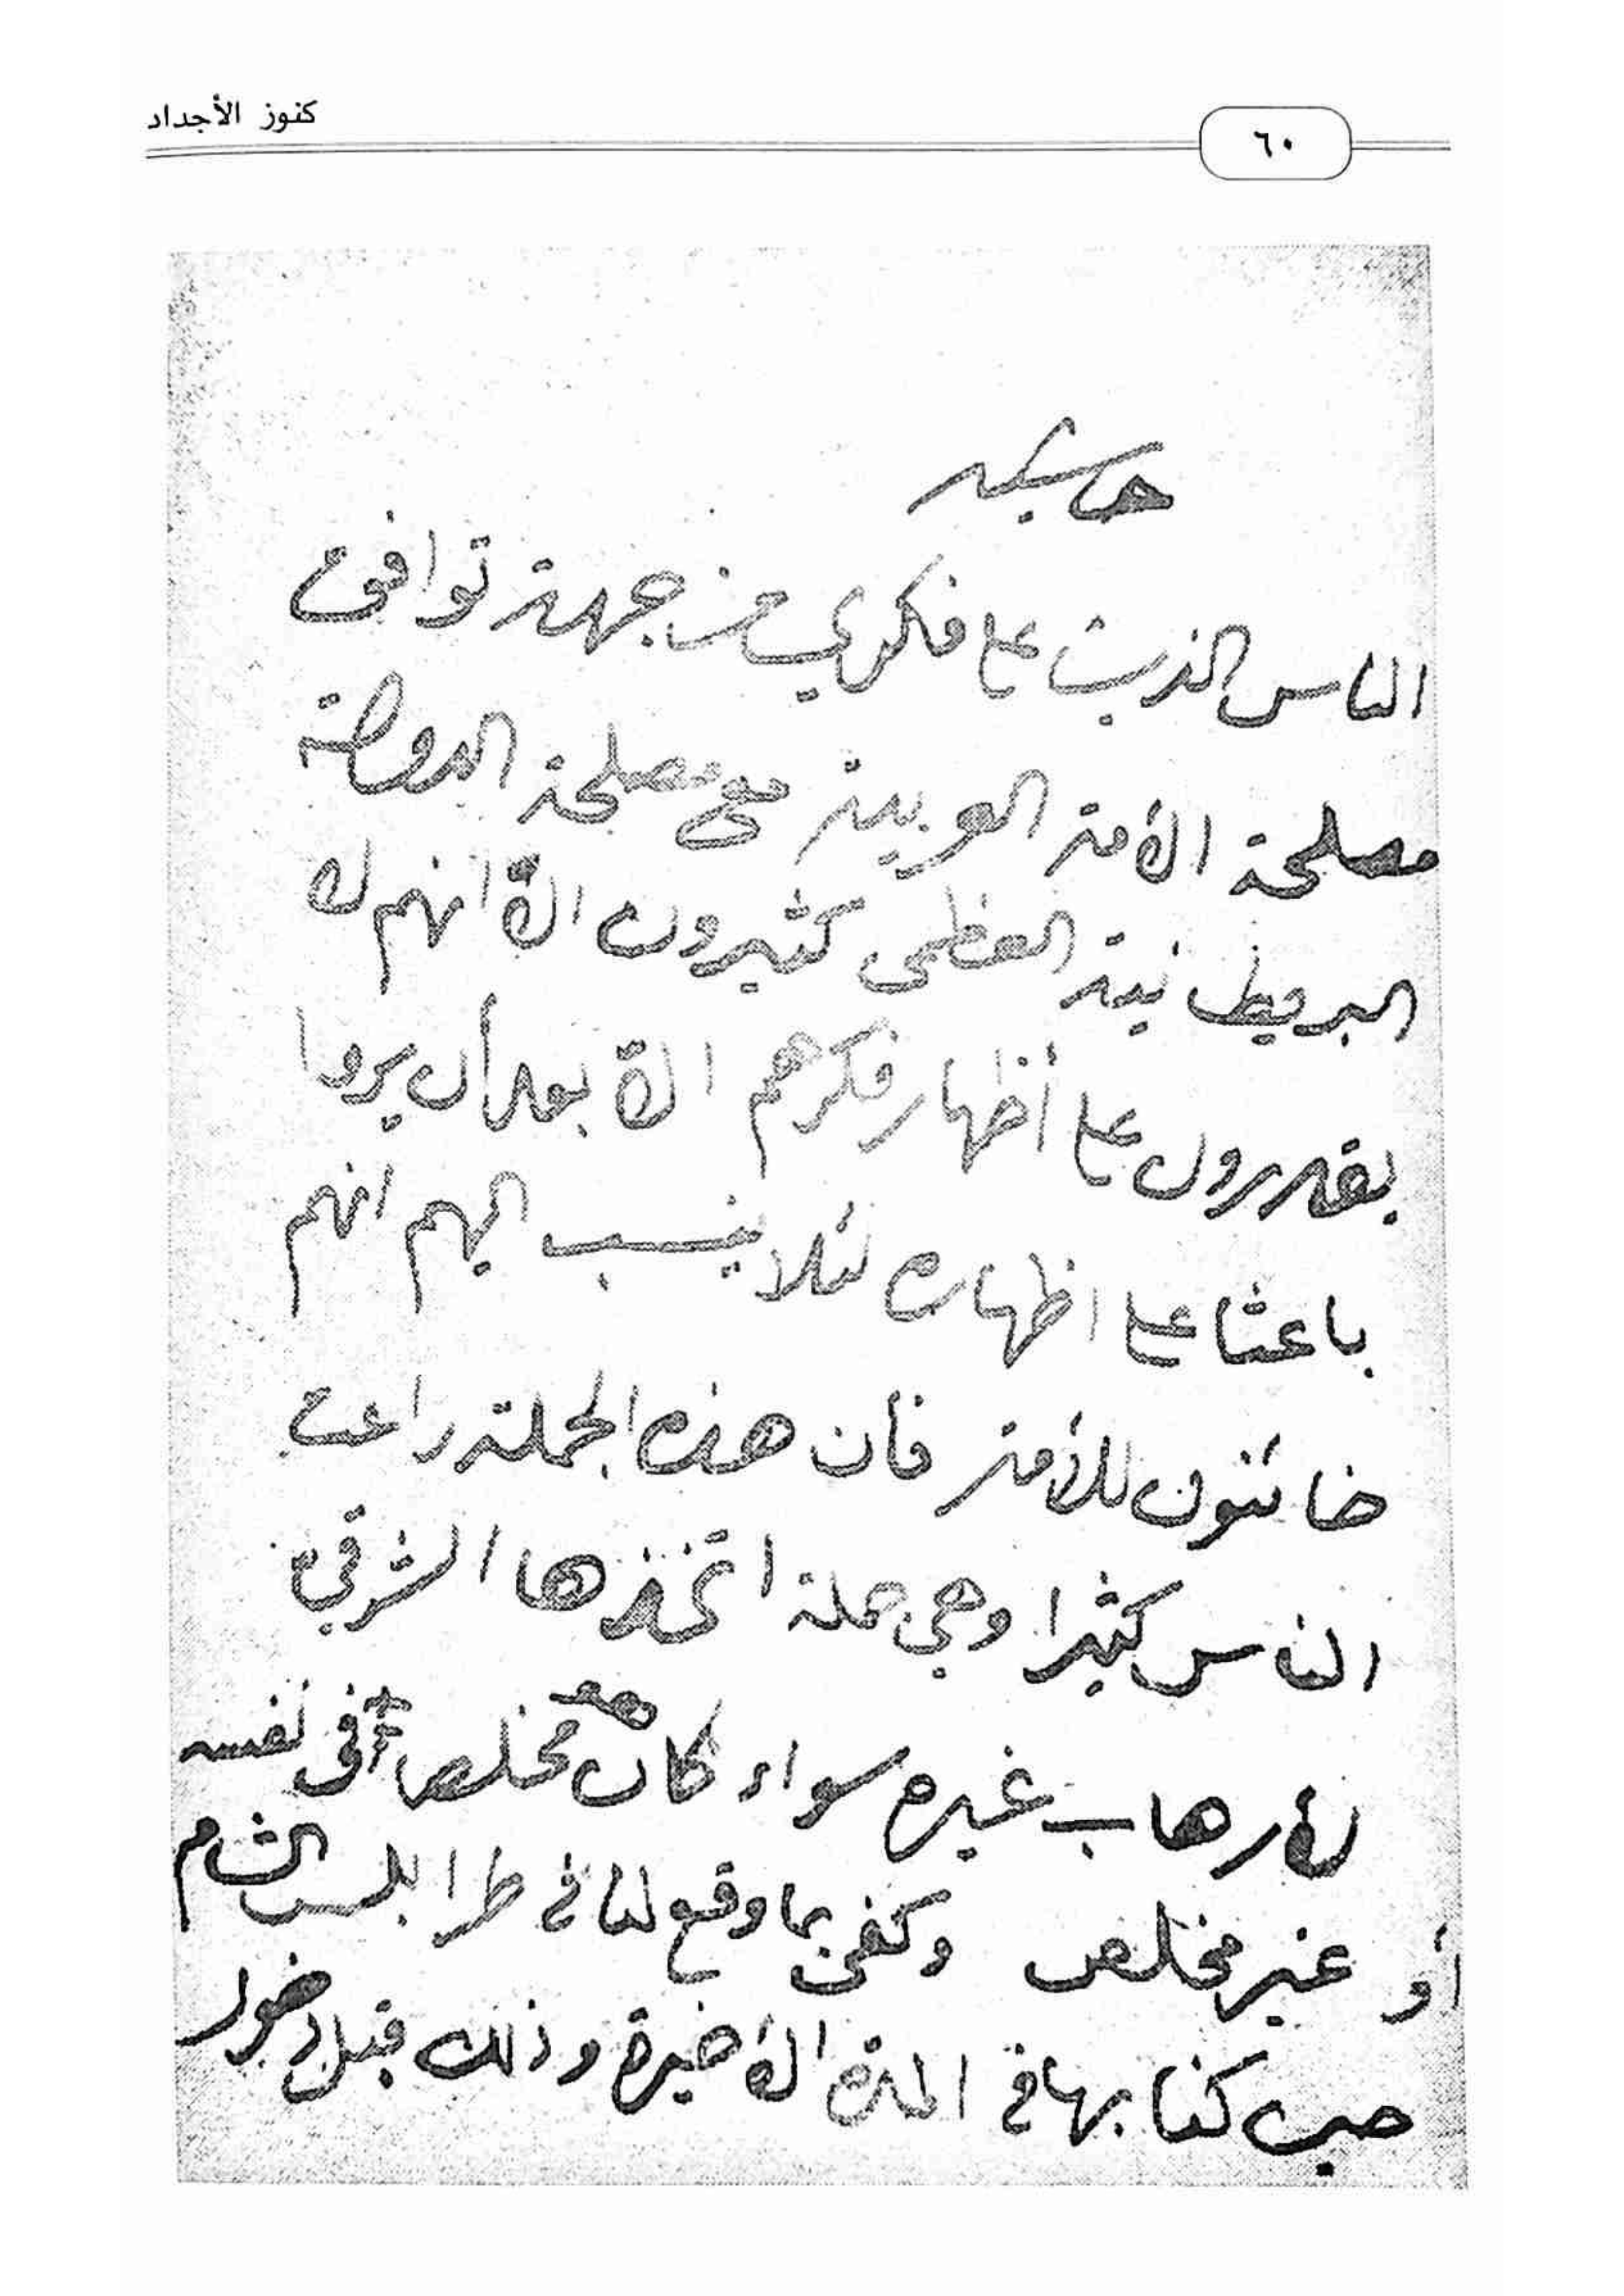 كنوز الأجداد
٦٠
الناس الذين على فكري من جهة توافق
مصلحة الأمة العربية مع مصلحة الدولة
البريطانية العظمى كثيرون الا انهم لا
يقدرون على أظهار فكرهم الا بعد أن يروا
باعثا على اظهاره لئلا ينسب اليهم انهم
خائنون للأمة فان هذه الجملة راعت
الناس كثيرا وهي جملة اتخذها الشرقي
لأرهاب غيره سواء كان مخلصا في نفسه
أو غير مخلص وكفى بما وقع لنا في طرابلس الشام
حين كنا بها في المدة الأخيرة وذلك قبل دخول